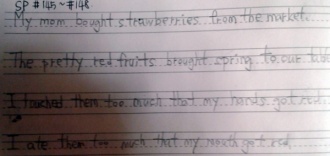 SP #145~#148
My mom bought strawberries from the market.
The pretty red fruits brought spring to our table
I touched them too much that my hands got red.
I ate them too much that my mouth got red.